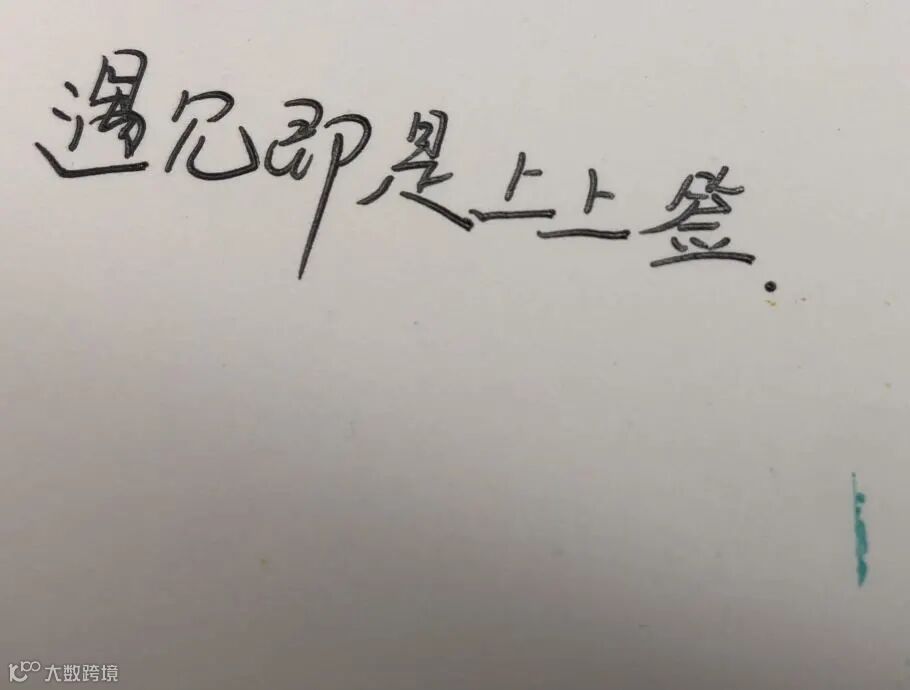 遇见即是上上签.
大数跨境